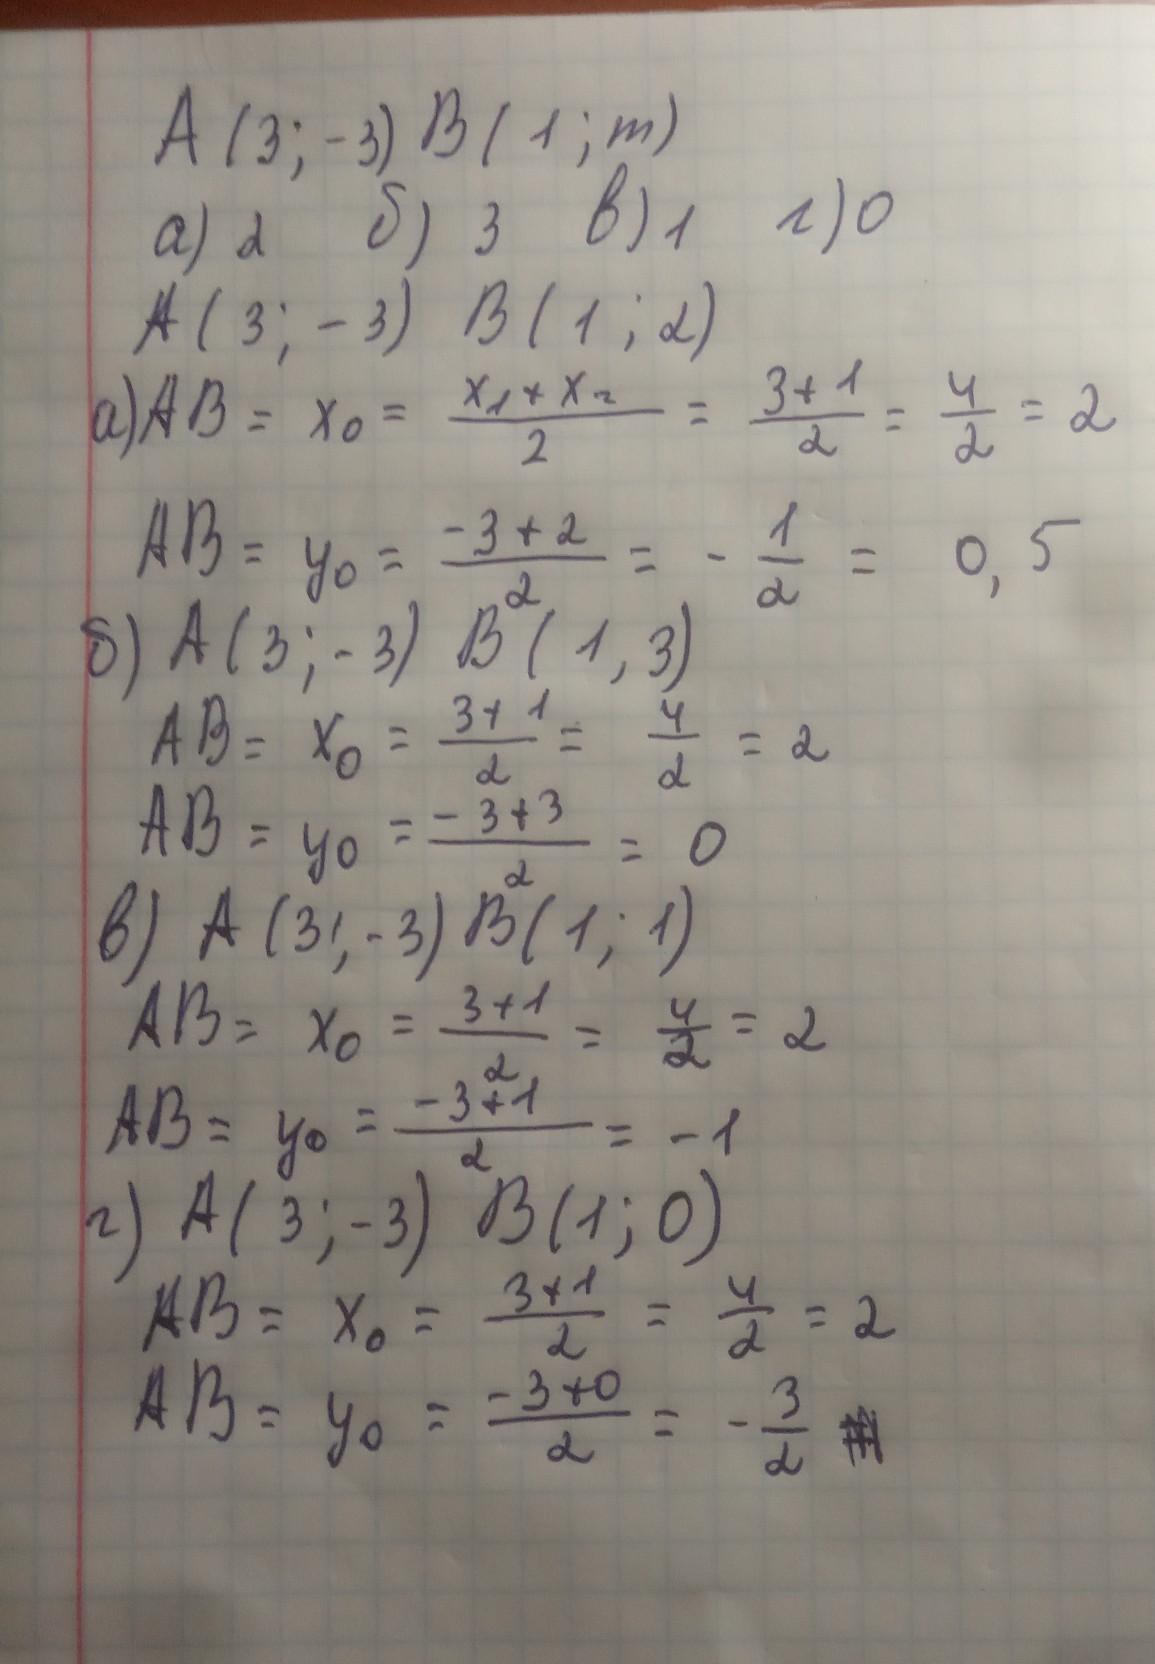 A (3; -3) B (1; m)
а) 2 б) 3 в) 1 г) 0
A (3; -3) B (1; 2)
а) AB = x₀ = (x₁ + x₂)/2 = (3+1)/2 = 4/2 = 2
AB = y₀ = (-3+2)/2 = -1/2 = 0,5
б) A (3; -3) B (1, 3)
AB = x₀ = (3+1)/2 = 4/2 = 2
AB = y₀ = (-3+3)/2 = 0
в) A (3; -3) B (1; 1)
AB = x₀ = (3+1)/2 = 4/2 = 2
AB = y₀ = (-3+1)/2 = -1
г) A (3; -3) B (1; 0)
AB = x₀ = (3+1)/2 = 4/2 = 2
AB = y₀ = (-3+0)/2 = -3/2